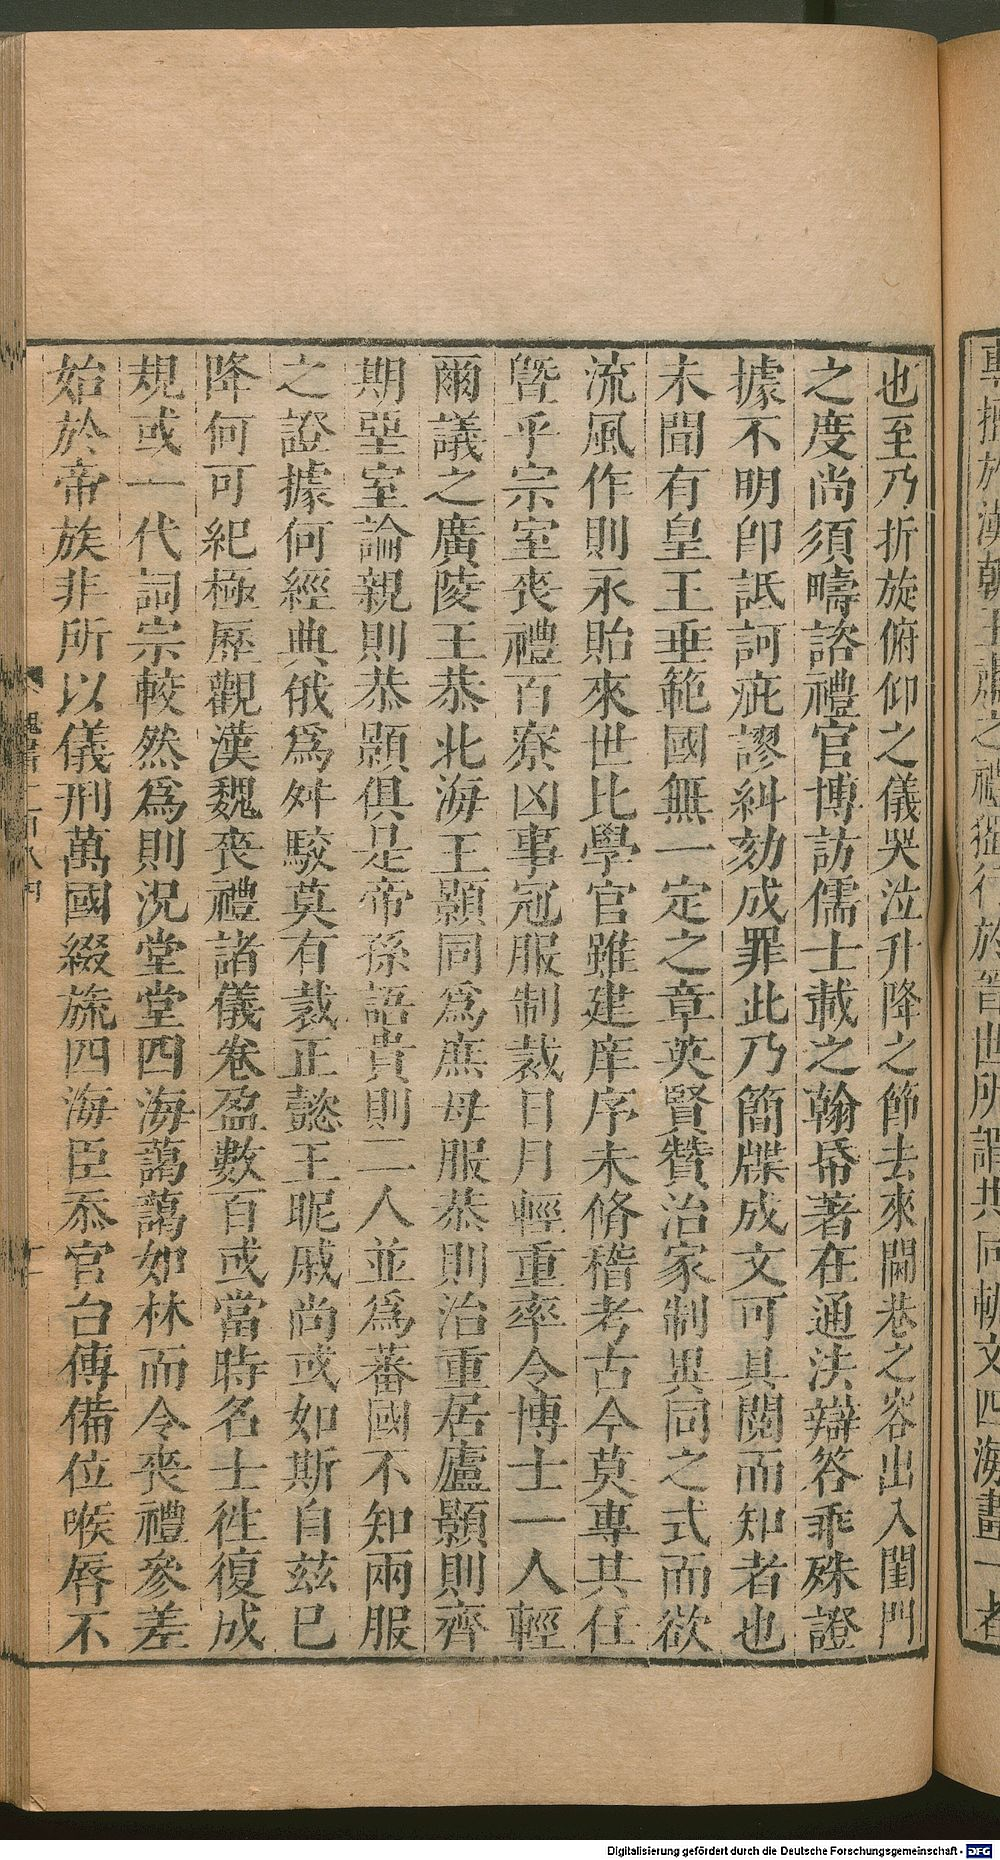 專擅於漢朝王肅之禮獨行於晉世所謂共同軌文四海畫一者
也至乃折旋俯仰之儀哭泣升降之節去來閫巷之容出入閨門
之度尚須疇諮禮官博訪儒士載之翰帋著在通法辯答乖殊證
據不明卽詆訶疵謬糾劾成罪此乃簡牒成文可具閱而知者也
未聞有皇王垂範國無一定之章英賢贊治家制異同之式而欲
流風作則永貽來世比學官雖建庠序未脩稽考古今莫專其任
曁乎宗室喪禮百寮凶事冠服制裁日月輕重率令博士一人輕
爾議之廣陵王恭北海王顥同爲庶母服恭則治重居廬顥則齊
期堊室論親則恭顥俱是帝孫語貴則二人並爲蕃國不知兩服
之證據何經典俄爲舛駮莫有裁正懿王昵戚尚或如斯自兹已
降何可紀極歷觀漢魏喪禮諸儀卷盈數百或當時名士徃復成
規或一代詞宗較然爲則況堂堂四海藹藹如林而令喪禮參差
始於帝族非所以儀刑萬國綴旒四海臣忝官台傅備位喉脣不
魏書一百八四
十一
Digitalisierung gefördert durch die Deutsche Forschungsgemeinschaft - DFG